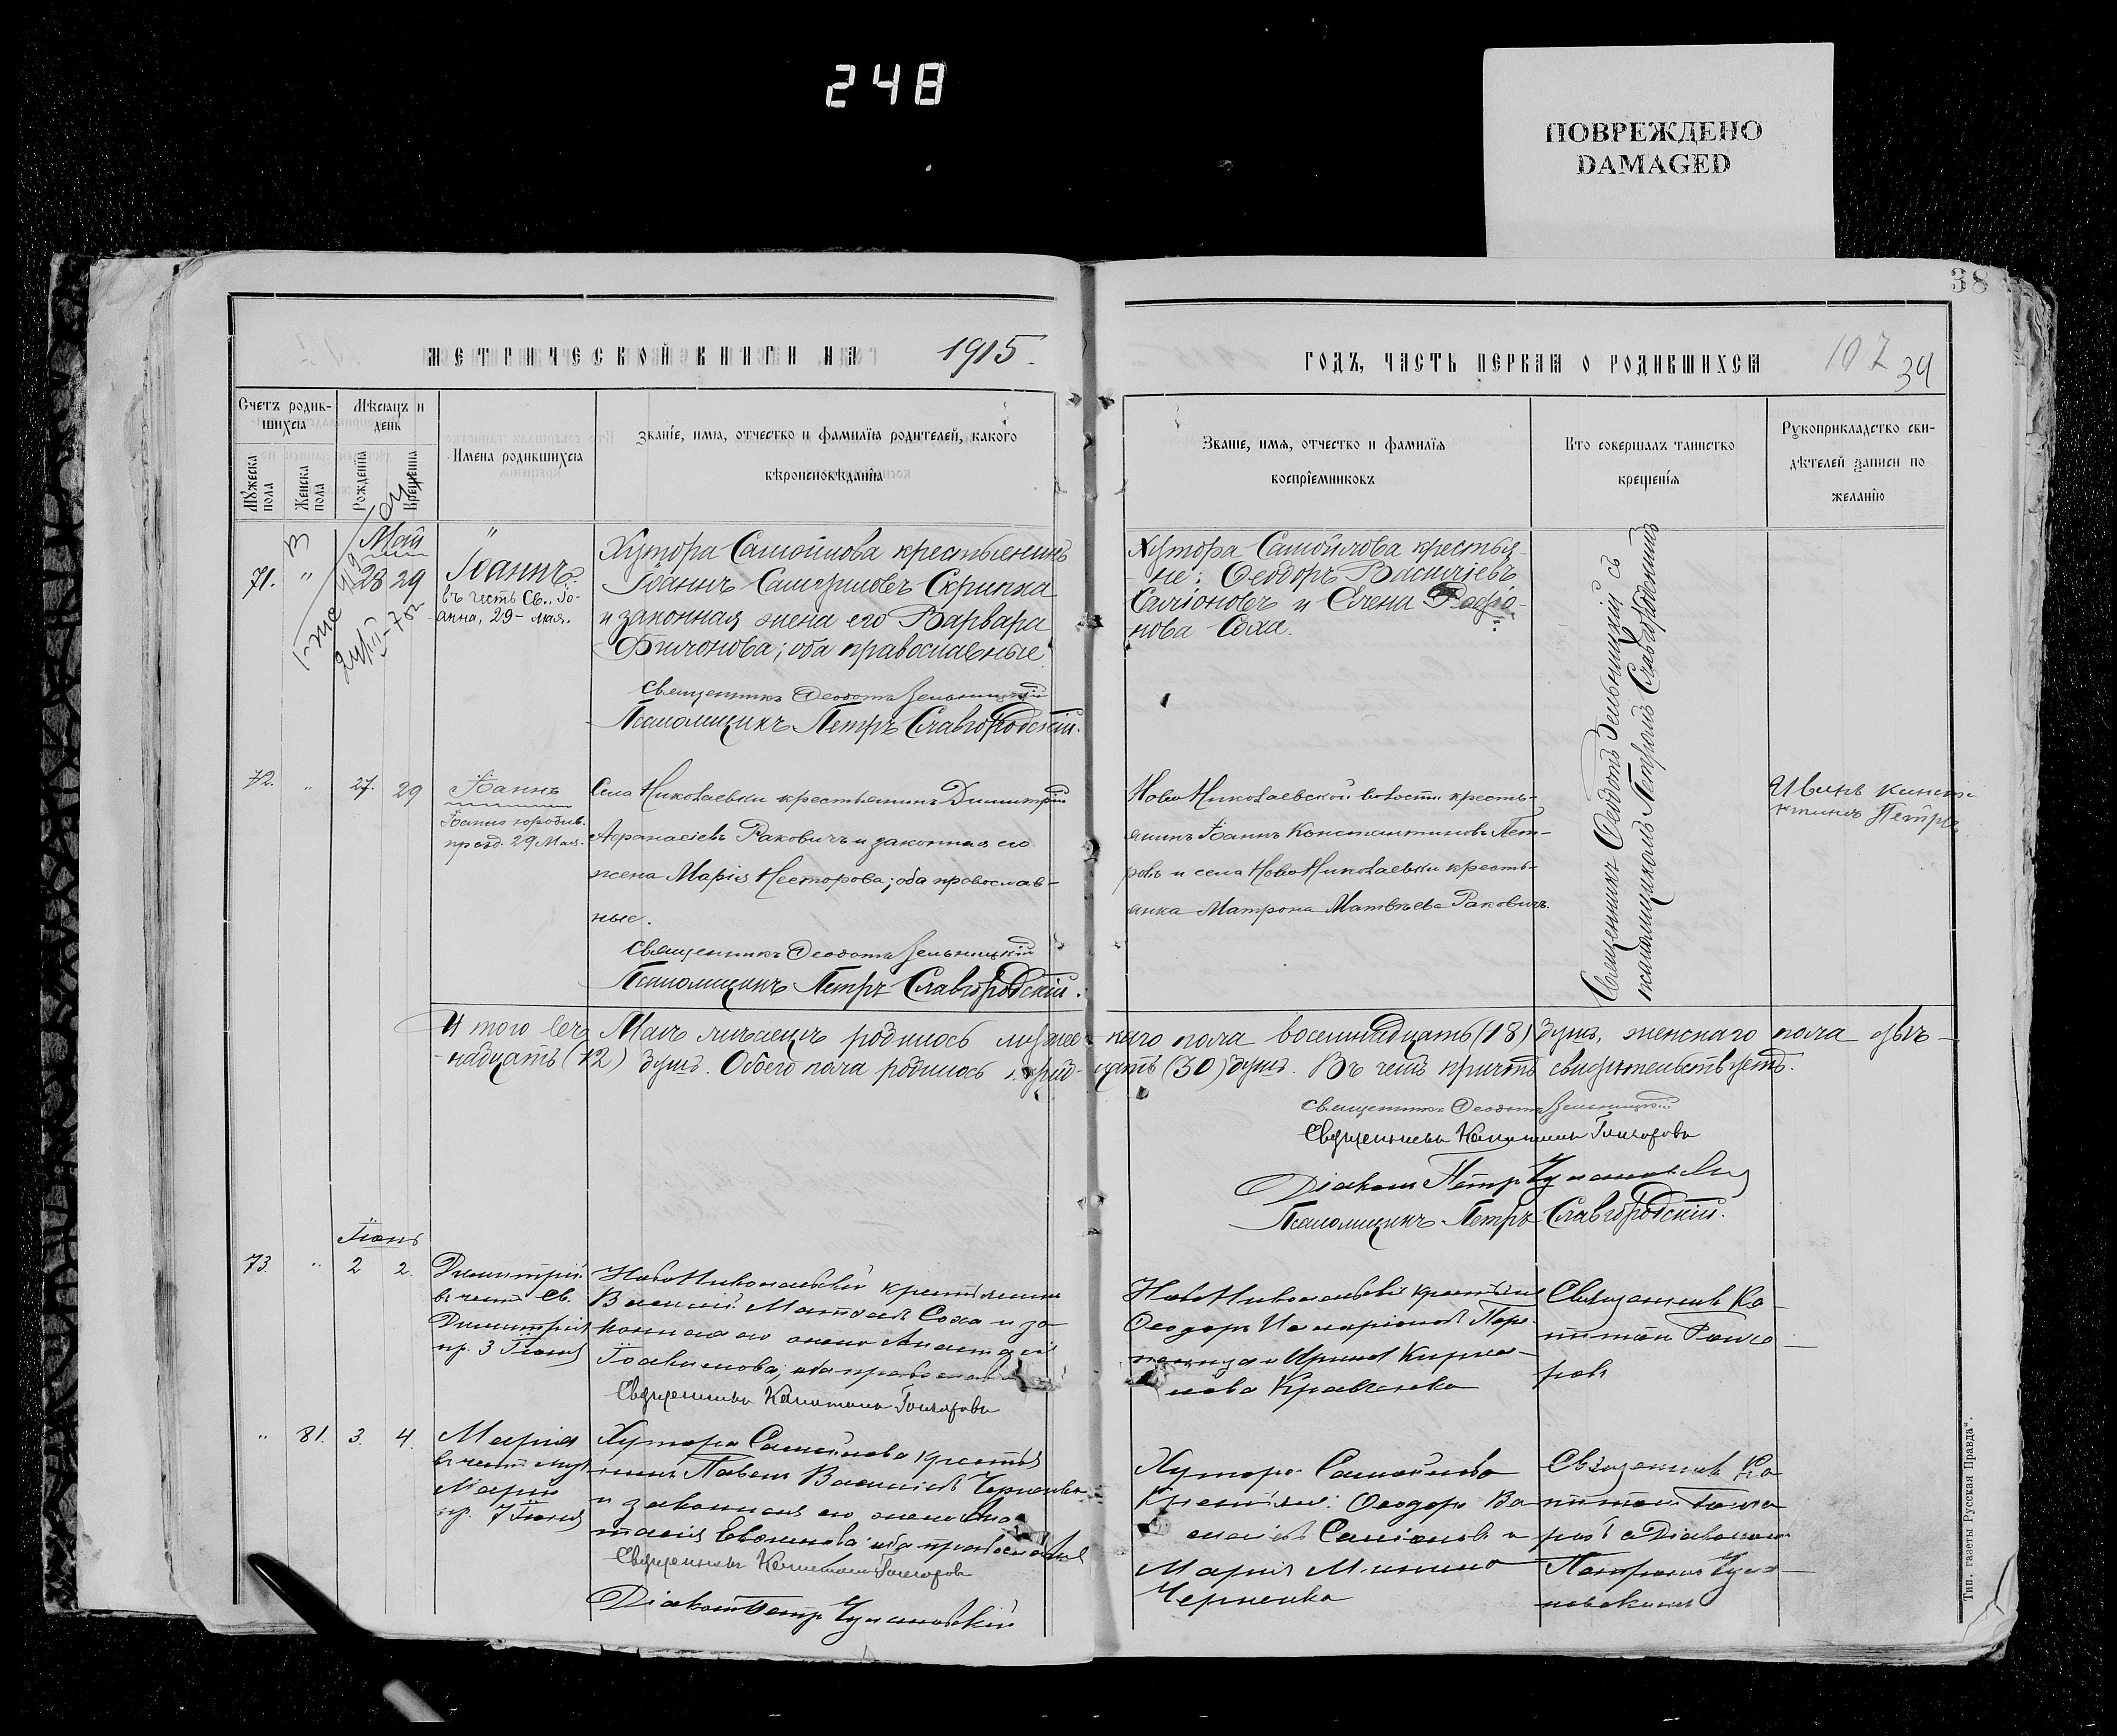 248
ПОВРЕЖДЕНО
DAMAGED
38
МЕТРИЧЕСКОЙ КНИГИ НА 1915.
ГОДЪ, ЧАСТЬ ПЕРВАЯ О РОДИВШИХСЯ
107
34
Счетъ родив-
шихся
Мѣсяцъ и
день
Имена родившихся
Званіе, имя, отчество и фамилія родителей, какого
вѣроисповѣданія
Мужеска
пола
Женска
пола
Рожденія
Крещенія
Званіе, имя, отчество и фамилія
воспріемниковъ
Кто совершалъ таинство
крещенія
Рукоприкладство сви-
дѣтелей записи по
желанію
Май
71. " 28 29
Іоаннъ
въ честь Св. Іо-
анна, 29 - мая.
Хутора Самойлова крестьянинъ
Іоаннъ Скрипка
и законная жена его Варвара
Филонова; оба православные.
Священникъ Ѳеодотъ Зельницкій
Псаломщикъ Петръ Славгородскій.
Хутора Самойлова крестья-
не: Ѳеодоръ Василіевъ
Силіоновъ и Елена Родіо-
нова Соха.
Священникъ Ѳеодотъ Зельницкій съ
псаломщикомъ Петромъ Славгородскимъ
72. " 27. 29
Іоаннъ
Іоанна юродив.
празд. 29 Мая.
Села Николаевки крестьянинъ Димитрій
Аѳанасіевъ Раковичъ и законная его
жена Марія Несторова; оба православ-
ные.
Священникъ Ѳеодотъ Зельницкій
Псаломщикъ Петръ Славгородскій.
Ново Николаевской волости кресть-
янинъ Іоаннъ Константиновъ Пет-
ровъ и села Ново Николаевки кресть-
янка Матрона Матвѣева Раковичъ.
Итого въ Маѣ мѣсяцѣ родилось мужес-каго пола восемнадцать (18) душъ, женскаго пола двѣ-
надцать (12) душъ. Обоего пола родилось тридцать (30) душъ. Въ чемъ причтъ свидѣтельствуетъ.
Священникъ Ѳеодотъ Зельницкій
Священникъ Капитонъ Гончаровъ
Діаконъ Петръ Чумановскій
Псаломщикъ Петръ Славгородскій.
Іюнь
73. " 2 2.
Димитрій
въ честь Св.
Димитрія
пр. 3 Іюня
Ново Николаевки крестьянинъ
Василій Матвѣевъ Соха и за-
конная его жена Анастасія
Іоакимова; оба православные
Священникъ Капитонъ Гончаровъ
Ново Николаевки крестьяне
Ѳеодоръ Иларіоновъ
и Ирина Кирил-
лова Кравченко
Священникъ Ка-
питонъ Гонча-
ровъ
" 81. 3. 4.
Марія
въ честь муч.
Маріи
пр. 7 Іюня
Хутора Самойлова крестья-
нинъ Павелъ Василіевъ Черненко
и законная его жена Ана-
стасія оба православные
Священникъ Капитонъ Гончаровъ
Діаконъ Петръ Чумановскій
Хутора Самойлова
Крестьяне: Ѳеодоръ Ва-
силіевъ Силіоновъ и
Марія Минина
Черненко
Священникъ Ка-
питонъ Гонча-
ровъ с Діакономъ
Петромъ Чума-
новскимъ
Тип. газеты „Русская Правда“.